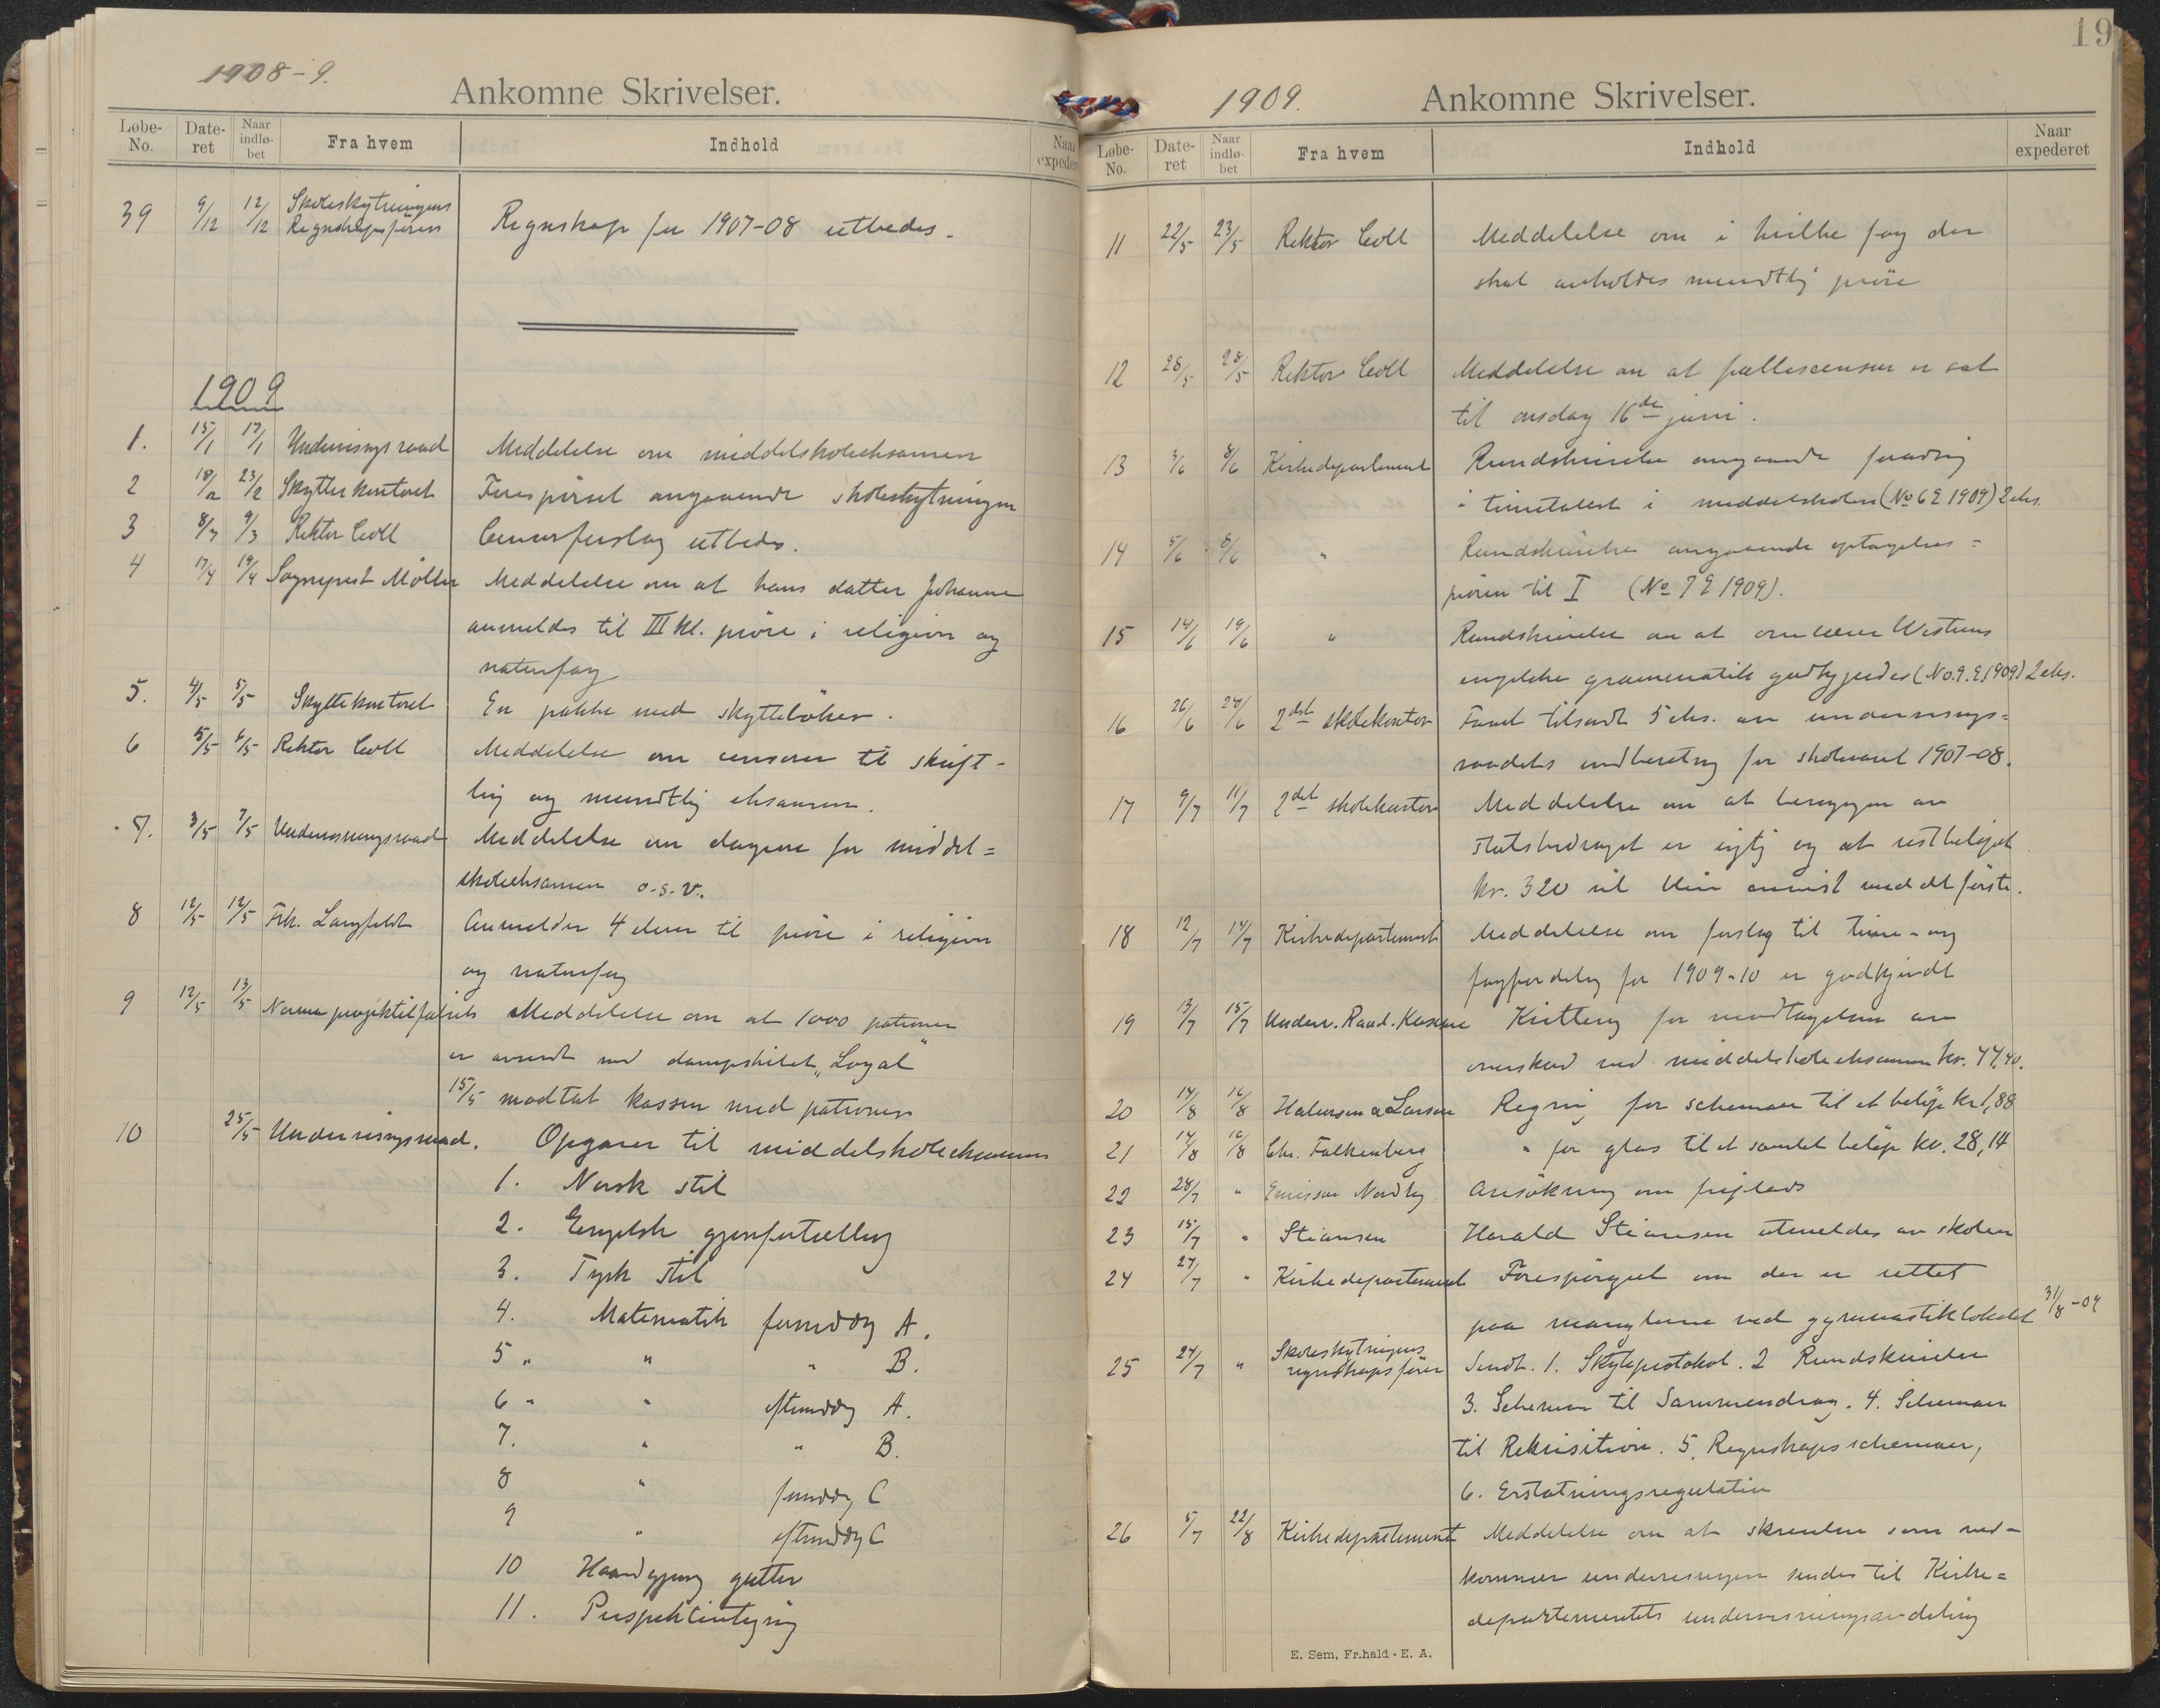 1908-9.
Ankomne Skrivelser.
Løbe-No. Date-ret Naar indlø-bet Fra hvem Indhold Naar expeder
39 9/12 12/12 Skoleskytningens Regnskapsfører Regnskap for 1907-08 utbedes.
1909
1. 15/1 17/1 Undervisngsraad Meddelelse om middelskoleeksamen
2 18/2 23/2 Skytterkontoret Forespørsel angaaende skoleskytningen
3 8/3 9/3 Rektor Coll Censorforslag utbedes.
4 17/4 19/4 Sogneprest Møller Meddelelse om at hans datter Johanne
anmeldes til III kl. prøve i religion og
naturfag
5. 4/5 5/5 Skyttekontoret En pakke med skyttebøker.
6 5/5 6/5 Rektor Coll Meddelelse om censorer til skrift-
lig og mundtlig eksamen.
7. 3/5 7/5 Undervisningsraad Meddelelse om dagene for middel=
skoleeksamen o.s.v.
8 12/5 12/5 Frk. Langfeldt Anmelder 4 elever til prøve i religion
og naturfag
9 12/5 13/5 Norma projektilfabrik Meddelelse om at 1000 patroner
er avsendt med dampskibet "Loyal"
15/5 mottat kassen med patroner
10 25/5 Undervisningsraad. Opgaver til middelskoleeksamen
1. Norsk stil
2. Engelsk gjenfortælling
3. Tysk stil
4. Matematik formiddag A.
5 " " " B.
6 " " eftermiddag A.
7. " " B.
8 " formiddag C
9 " eftermiddag C
10 Haandgjerning gutter
11. Perspektivtegning
19
1909.
Ankomne Skrivelser.
Løbe-No. Date-ret Naar indlø-bet Fra hvem Indhold Naar expederet
11 22/5 23/5 Rektor Coll Meddelelse om i hvilke fag der
skal avholdes mundtlig prøve
12 28/5 28/5 Rektor Coll Meddelelse om at fællescensur er sat
til onsdag 16de juni.
13 3/6 8/6 Kirkedepartement Rundskrivelse angaaende forandring
i timetallet i middelskolen (No 6 E 1909) 2 eks.
14 5/6 8/6 " Rundskrivelse angaaende optagelses=
prøven til I (No 7 E 1909).
15 14/6 19/6 " Rundskrivelse om at Westerns
engelske grammatik godkjendes (No. 9. E. 1909) 2 eks.
16 26/6 2det skolekontor Faaet tilsendt 5 eks. av undervisnings=
raadets indberetning for skoleaaret 1907-08.
17 9/7 11/7 2det skolekontor Meddelelse om at beregningen av
statsbidraget er rigtig og at restbeløpet
kr. 320 vil blive anvist med det første.
18 12/7 14/7 Kirkedepartement Meddelelse om forslag til time- og
fagfordeling for 1909-10 er godkjendt
19 13/7 15/7 Underv. Raad. Kasserer Kvittering for modtagelsen av
overskud ved middelskoleeksamen kr. 44,40.
20 14/8 16/8 Halvorsen & Larsen Regning for schemaer til et beløp kr 1,88
21 14/8 16/8 Chr. Falkenberg " for glas til et samlet beløp kr. 28,14
22 28/7 " Nordby Ansøkning om friplads
23 15/7 " Stiansen Harald Stiansen utmeldes av skolen
24 27/7 " Kirkedepartement Forespørgsel om der er rettet
paa manglerne ved gymnastiklokalet 31/8-09
25 27/7 " Skoleskytningens regnskapsfører Sendt. 1. Skyteprotokol. 2 Rundskrivelse
3. Schema til Sammendrag. 4. Schemaer
til Rekvisition. 5. Regnskapsschemaer,
6. Erstatningsregulativ
26 5/7 22/8 Kirkedepartement Meddelelse om at skrivelser som ved-
kommer undervisningen sendes til Kirke=
departementets undervisningsavdeling
E. Sem, Fr.hald - E. A.